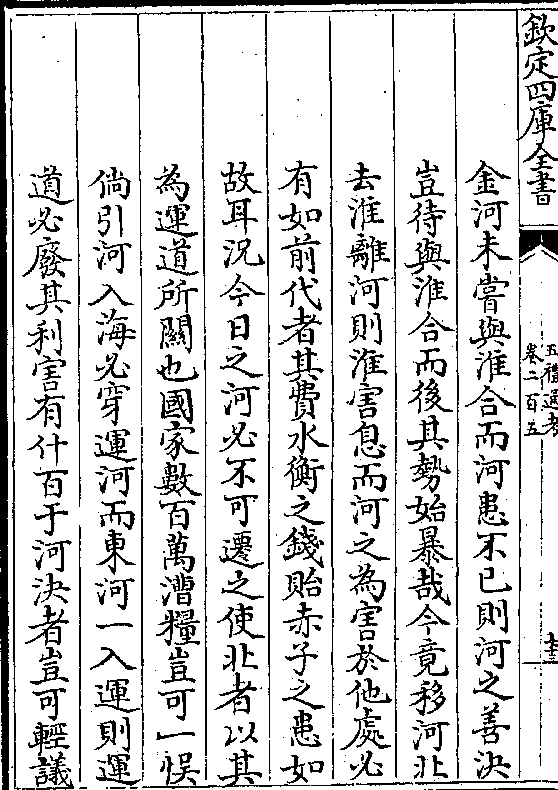 欽定四庫全書
五禮通考
卷二百五
金河未嘗與淮合而河患不已則河之善決
豈待與淮合而後其勢始暴哉今竟移河北
去淮離河則淮害息而河之為害於他處必
有如前代者其費水衡之錢貽赤子之患如
故耳況今日之河必不可遷之使北者以其
為運道所關也國家數百萬漕糧豈可一悞
倘引河入海必穿運河而東河一入運則運
道必廢其利害有什百于河決者豈可輕議